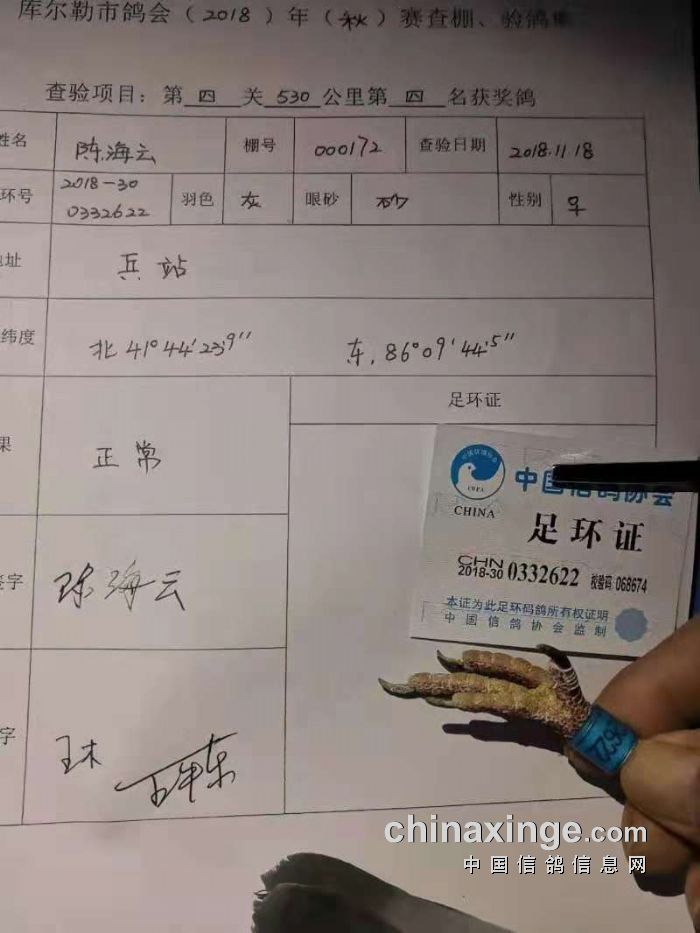 库尔勒市鸽会（2018）年（秋）赛查棚、验鸽
查验项目：第 四 关 530 公里第 四 名获奖鸽
姓名 陈海云 棚号 000172 查验日期 2018.11.18
环号 2018-30 0332622 羽色 灰 眼砂 砂 性别 ♀
地址 兵站
纬度 北 41°44′23.9″ 东, 86°09′44.5″
果 正常 足环证
签字 陈海云
字 王木
中国信鸽协会
CHRPA
CHINA
中国信鸽协会
足环证
CHN
2018-30 0332622 校验码:068674
本证为此足环码鸽所有权证明
中国信鸽协会监制
chinaxinge.com
中国信鸽信息网